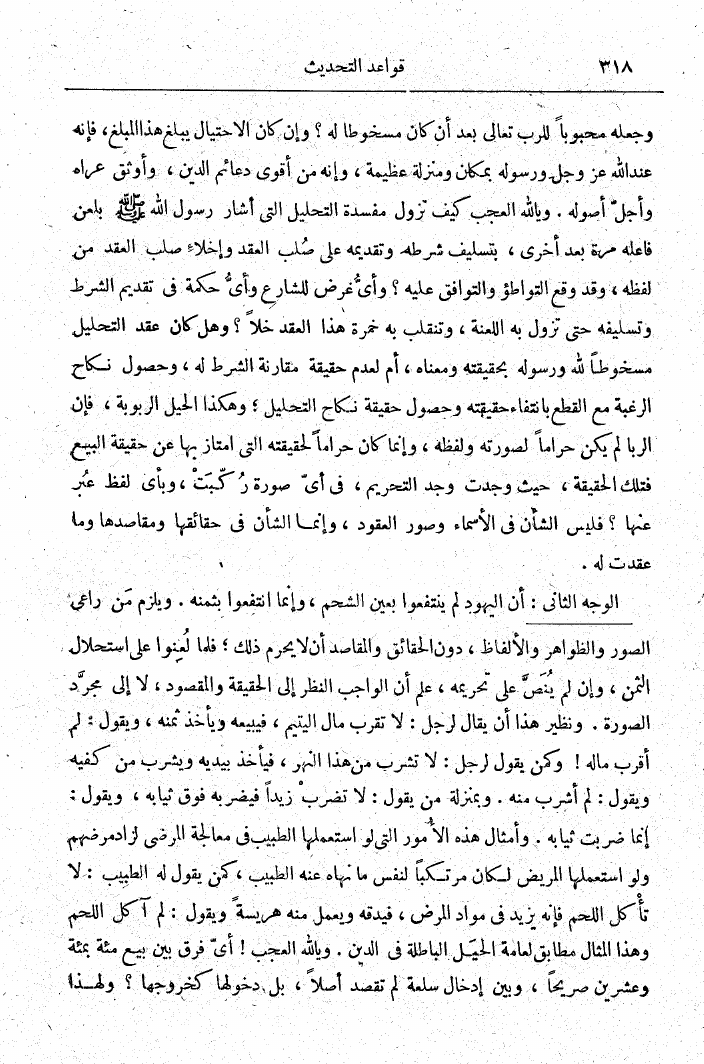 ٣١٨ قواعد التحديث
وجعله محبوباً للرب تعالى بعد أن كان مسخوطا له ؟ وإن كان الاحتيال يبلغ هذا المبلغ، فإنه
عند الله عز وجل ورسوله بمكان ومنزلة عظيمة ، وإنه من أقوى دعائم الدين ، وأوثق عراه
وأجلّ أصوله . ويالله العجب كيف تزول مفسدة التحليل التى أشار رسول الله ﷺ بلعن
فاعله مرة بعد أخرى ، بتسليف شرطه وتقديمه على صُلب العقد وإخلاء صلب العقد من
لفظه ، وقد وقع التواطؤ والتوافق عليه ؟ وأىُّ غرض للشارع وأىُّ حكمة فى تقديم الشرط
وتسليفه حتى تزول به اللعنة ، وتنقلب به خمرة هذا العقد خلاً ؟ وهل كان عقد التحليل
مسخوطاً لله ورسوله بحقيقته ومعناه ، أم لعدم حقيقة مقارنة الشرط له ، وحصول نكاح
الرغبة مع القطع بانتفاء حقيقته وحصول حقيقة نكاح التحليل ؛ وهكذا الحيل الربوية ، فإن
الربا لم يكن حراماً لصورته ولفظه ، وإنما كان حراماً لحقيقته التى امتاز بها عن حقيقة البيع
فتلك الحقيقة ، حيث وجدت وجد التحريم ، فى أىّ صورة رُكّبتْ ، وبأى لفظ عبر
عنها ؟ فليس الشأن فى الأسماء وصور العقود ، وإنما الشأن فى حقائقها ومقاصدها وما
عقدت له .
الوجه الثانى : أن اليهود لم ينتفعوا بعين الشحم ، وإنما انتفعوا بثمنه . ويلزم مَن راعى
الصور والظواهر والألفاظ ، دون الحقائق والمقاصد أن لا يحرم ذلك ؛ فلما لُعِنوا على استحلال
الثمن ، وإن لم يُنَصَّ على تحريمه ، علم أن الواجب النظر إلى الحقيقة والمقصود ، لا إلى مجرَّد
الصورة . ونظير هذا أن يقال لرجل : لا تقرب مال اليتيم ، فيبيعه ويأخذ ثمنه ، ويقول : لم
أقرب ماله ! وكمن يقول لرجل : لا تشرب من هذا النهر ، فيأخذ بيديه ويشرب من كفيه
ويقول : لم أشرب منه . وبمنزلة من يقول : لا تضربْ زيداً فيضربه فوق ثيابه ، ويقول :
إنما ضربت ثيابه . وأمثال هذه الأُمور التى لو استعملها الطبيب فى معالجة المرضى لزاد مرضهم
ولو استعملها المريض لكان مرتكباً لنفس ما نهاه عنه الطبيب ، كمن يقول له الطبيب : لا
تأْكل اللحم فإنه يزيد فى مواد المرض ، فيدقه ويعمل منه هريسةً ويقول : لم آكل اللحم
وهذا المثال مطابق لعامة الحيَل الباطلة فى الدين . ويالله العجب ! أىّ فرق بين بيع مئة بمئة
وعشرين صريحاً ، وبين إدخال سلعة لم تقصد أصلاً ، بل دخولها كخروجها ؟ ولهذا